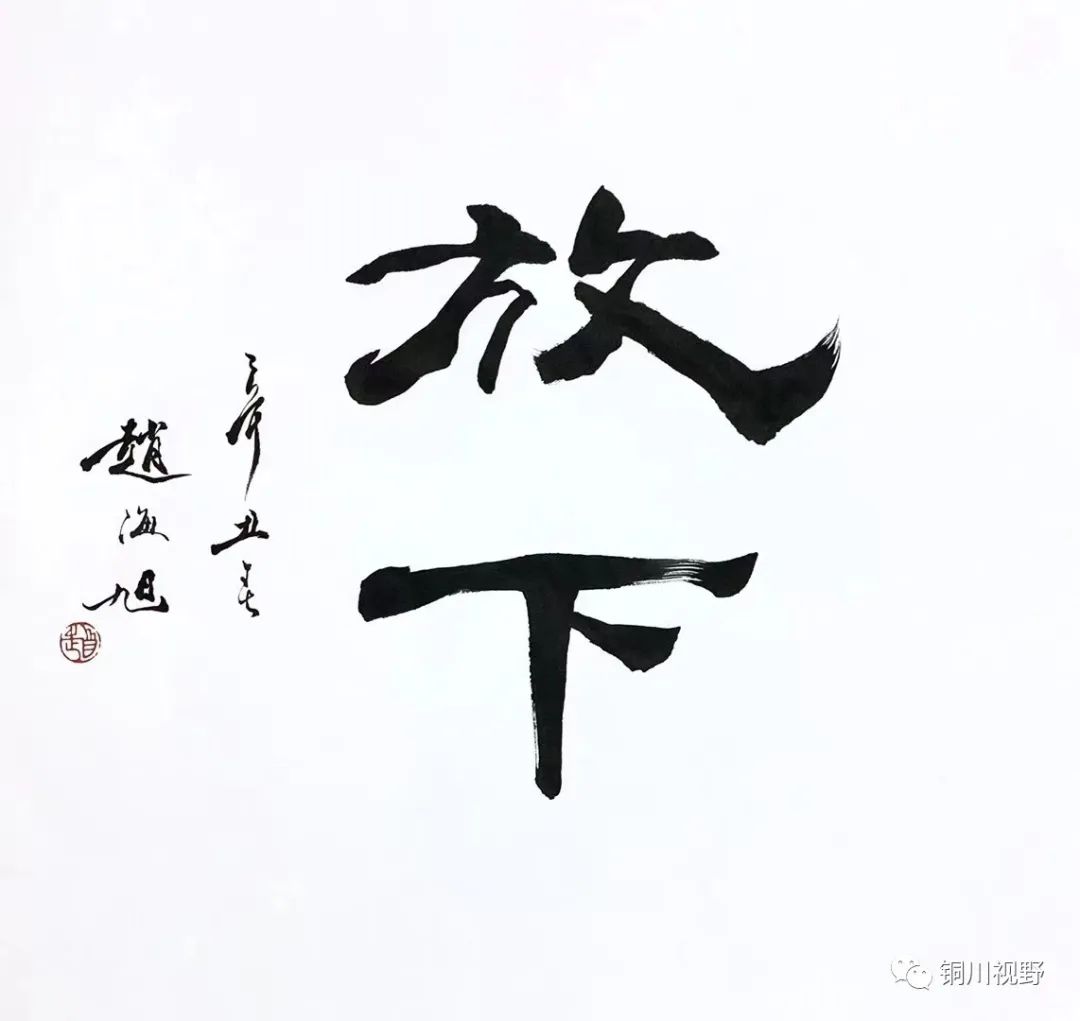 放下
辛丑春
趙海旭
铜川视野